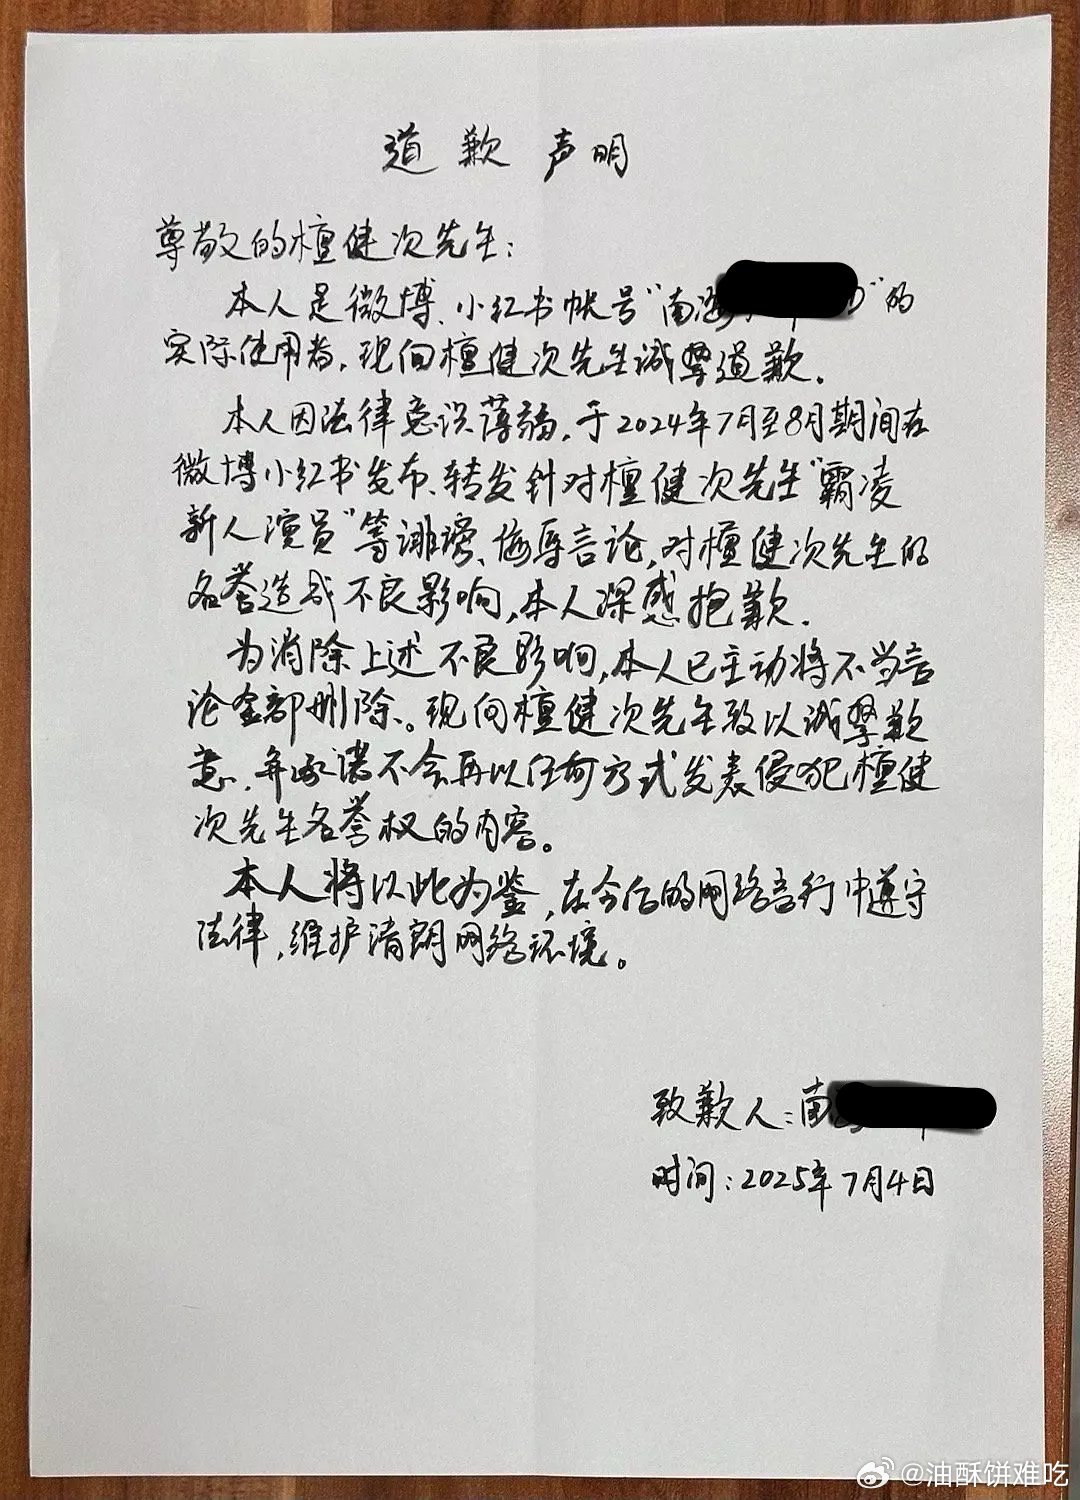 道歉声明
尊敬的檀健次先生：
本人是微博、小红书帐号“南海”的
实际使用者，现向檀健次先生诚挚道歉。
本人因法律意识薄弱，于2024年7月至8月期间在
微博小红书发布、转发针对檀健次先生“霸凌
新人演员”等诽谤、侮辱言论，对檀健次先生的
名誉造成不良影响，本人深感抱歉。
为消除上述不良影响，本人已主动将不当言
论全部删除。现向檀健次先生致以诚挚歉
意，并承诺不会再以任何方式发表侵犯檀健
次先生名誉权的内容。
本人将以此为鉴，在今后的网络言行中遵守
法律，维护清朗网络环境。
致歉人：南
时间：2025年7月4日
@油酥饼难吃